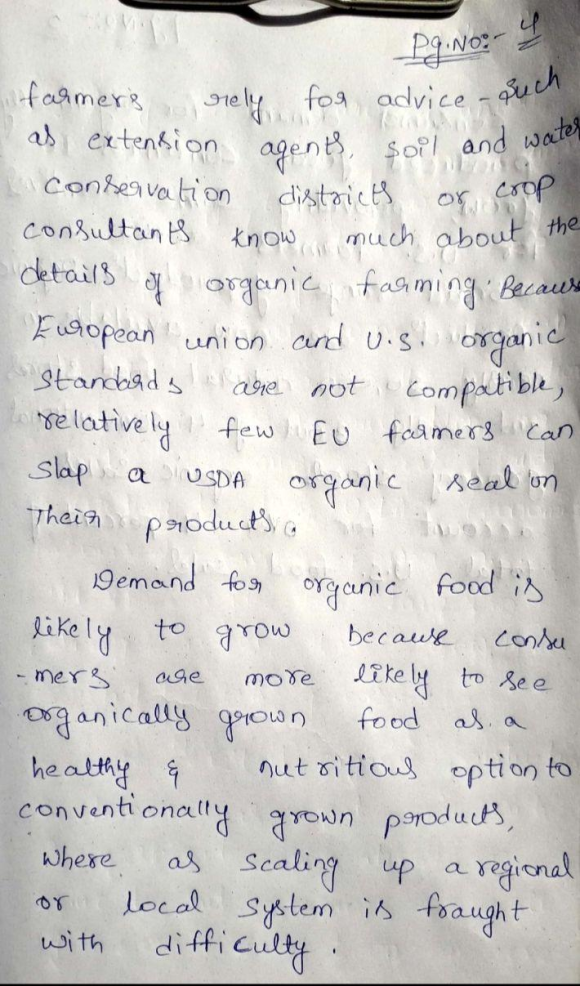 Pg.No:- 4
farmers rely for advice - such
as extension agents, soil and water
conservation districts or crop
consultants know much about the
details of organic farming. Becaus
European union and U.S. organic
Standards are not compatible,
relatively few EU farmers can
slap a USDA organic seal on
Their products.
Demand for organic food is
likely to grow because consu
-mers are more likely to see
organically grown food as a
healthy & nutritious option to
conventionally grown products,
where as scaling up a regional
or local system is fraught
with difficulty.